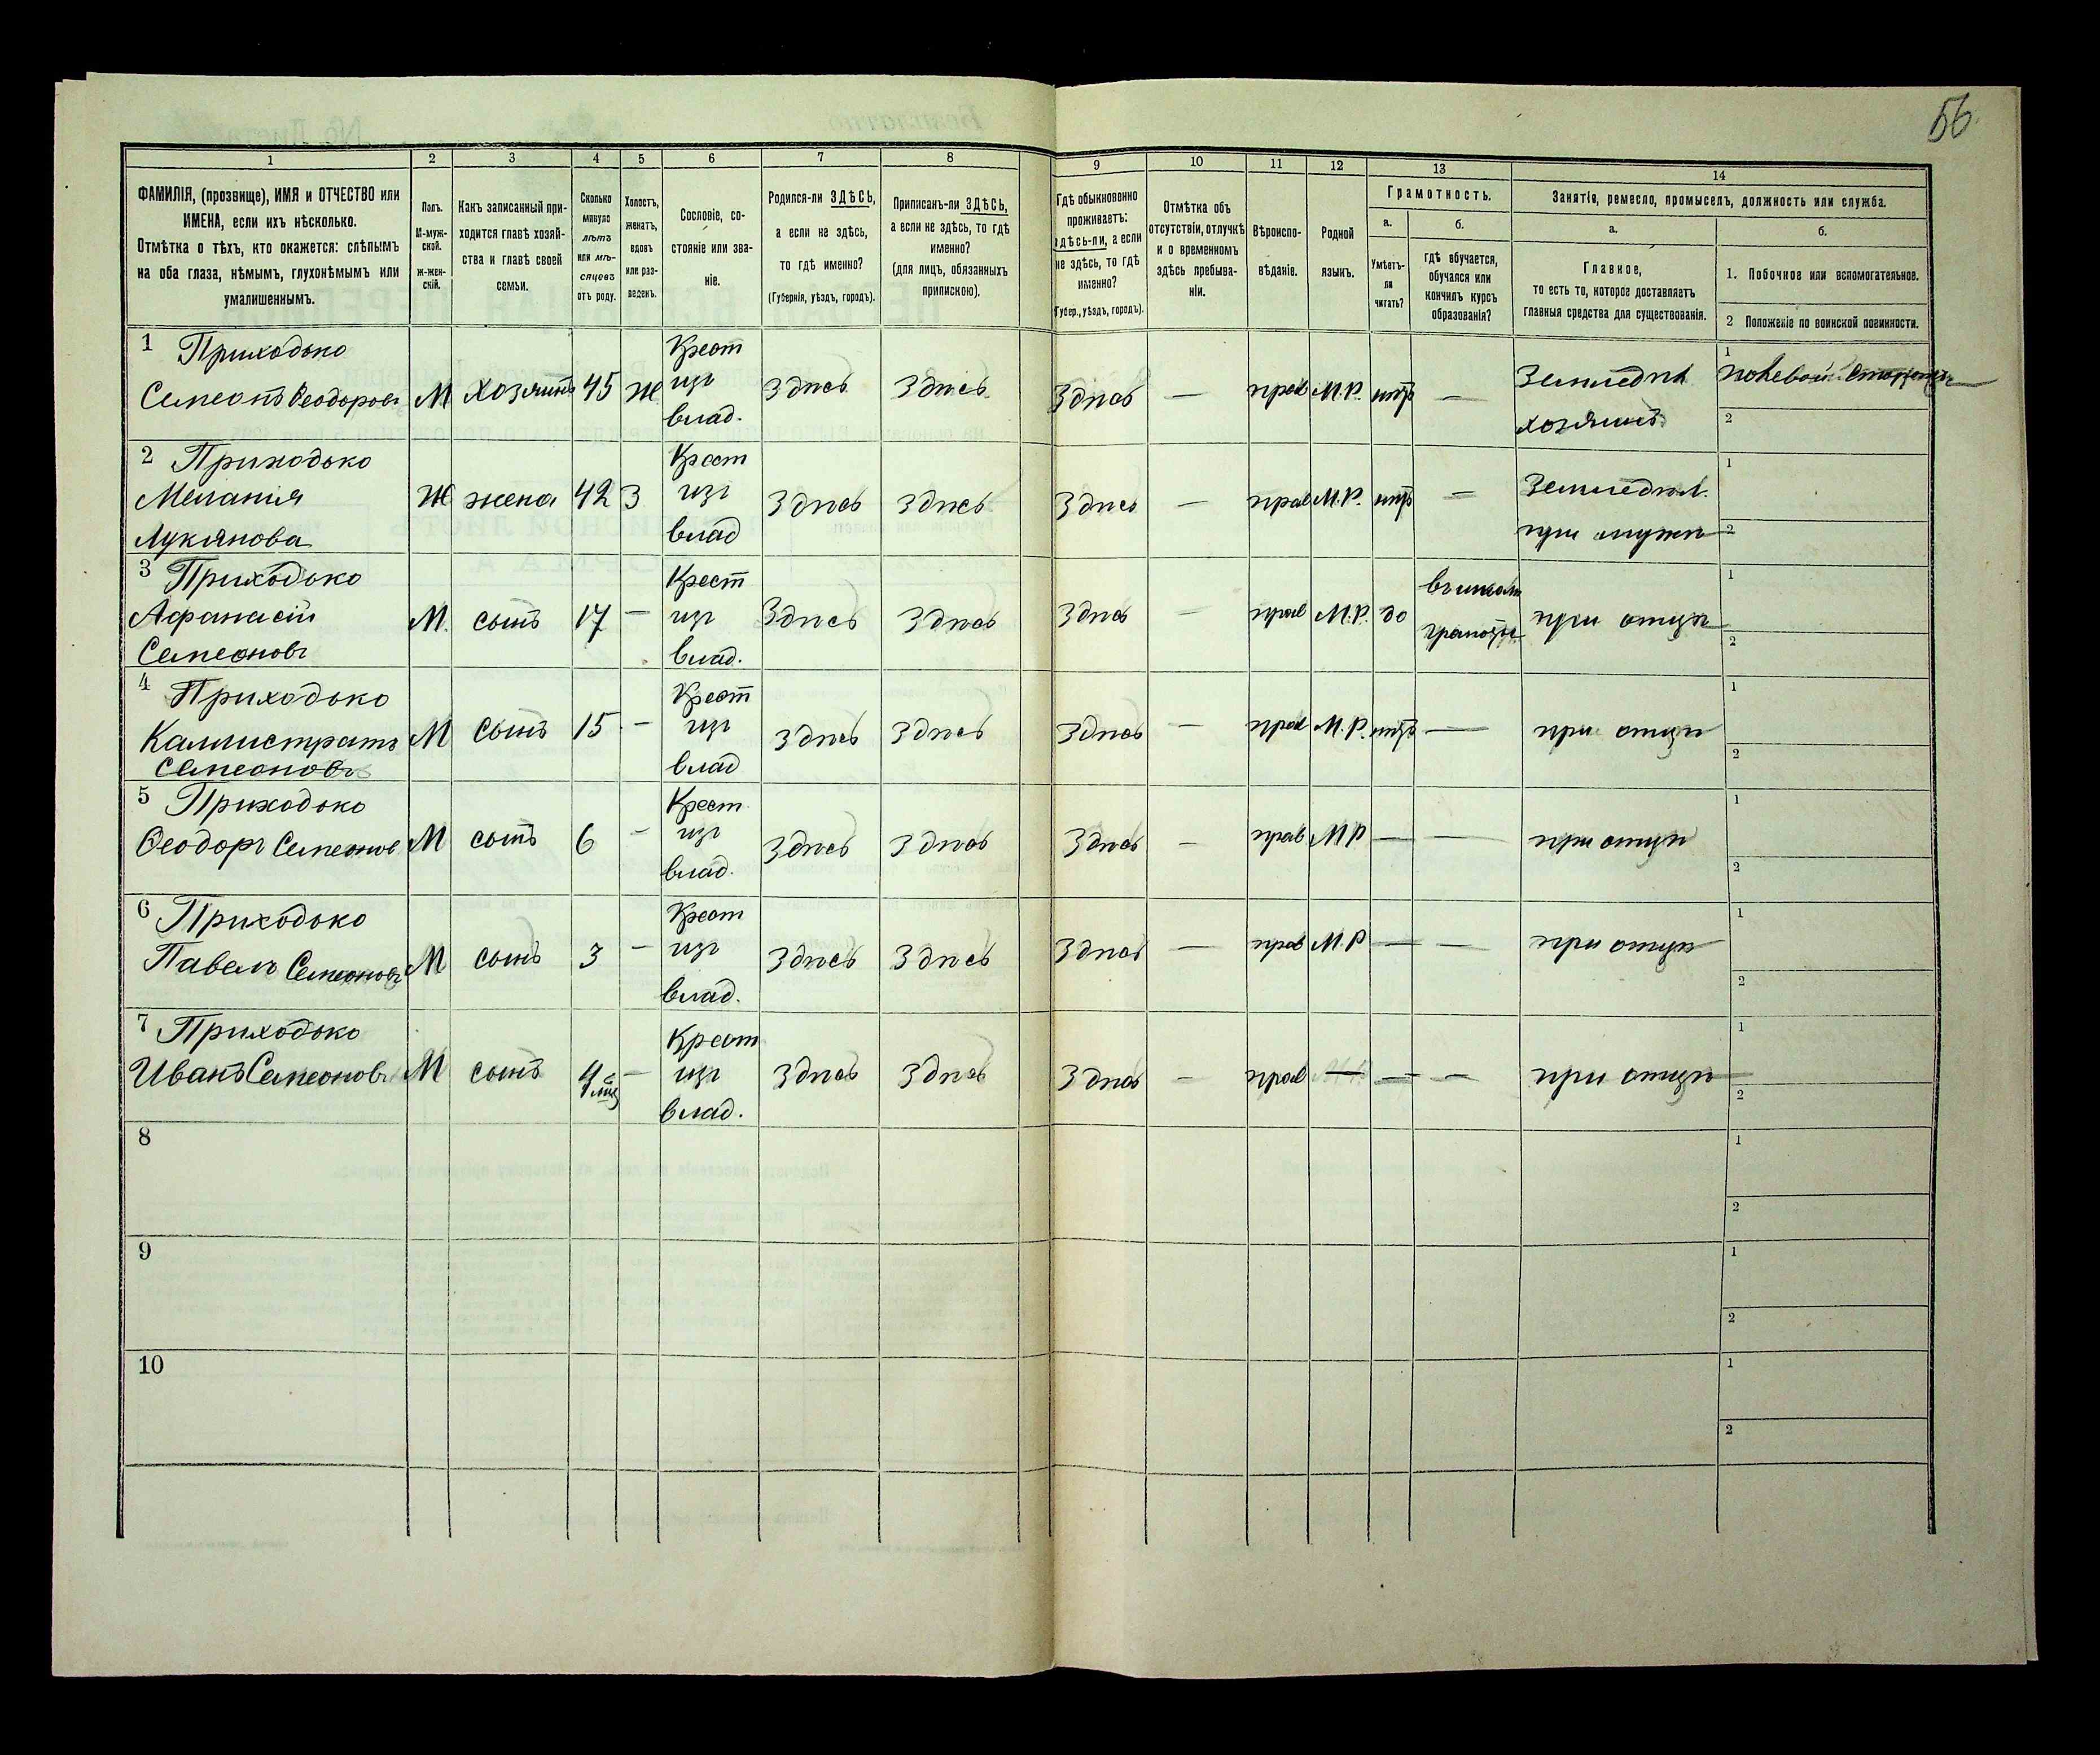 56.
1 2 3 4 5 6 7 8 9 10 11 12 13 14
ФАМИЛІЯ, (прозвище), ИМЯ и ОТЧЕСТВО или
ИМЕНА, если ихъ нѣсколько.
Отмѣтка о тѣхъ, кто окажется: слѣпымъ
на оба глаза, нѣмымъ, глухонѣмымъ или
умалишеннымъ.
Полъ.
М-муж-
ской.
ж-жен-
скій.
Какъ записанный при-
ходится главѣ хозяй-
ства и главѣ своей
семьи.
Сколько
минуло
лѣтъ
или мѣ-
сяцевъ
отъ роду.
Холостъ,
женатъ,
вдовъ
или раз-
веденъ.
Сословіе, со-
стояніе или зва-
ніе.
Родился-ли ЗДѢСЬ,
а если не здѣсь,
то гдѣ именно?
(Губернія, уѣздъ, городъ).
Приписанъ-ли ЗДѢСЬ,
а если не здѣсь, то гдѣ
именно?
(для лицъ, обязанныхъ
припискою).
Гдѣ обыкновенно
проживаетъ:
здѣсь-ли, а если
не здѣсь, то гдѣ
именно?
(Губер., уѣздъ, городъ).
Отмѣтка объ
отсутствіи, отлучкѣ
и о временномъ
здѣсь пребыва-
ніи.
Вѣроиспо-
вѣданіе.
Родной
языкъ.
Грамотность.
а.
Умѣетъ-
ли
читать?
б.
гдѣ обучается,
обучался или
кончилъ курсъ
образованія?
Занятіе, ремесло, промыселъ, должность или служба.
а.
Главное,
то есть то, которое доставляетъ
главныя средства для существованія.
б.
1. Побочное или вспомогательное.
2 Положеніе по воинской повинности.
1 Приходько
Семеонъ Ѳеодоровъ М хозяинъ 45 ж
Крест
изъ
влад.
Здѣсь Здѣсь Здѣсь — прав М.Р. нѣтъ —
Земледѣл
хозяинъ
1 полевой сторожъ
2
2 Приходько
Мелания
Лукянова
Ж жена 42 З
Крест
изъ
влад
Здѣсь Здѣсь Здѣсь — прав М.Р. нѣтъ —
Земледѣл.
при мужѣ
1
2
3 Приходько
Афанасій
Семеоновъ
М. сынъ 17 —
Крест
изъ
влад.
Здѣсь Здѣсь Здѣсь — прав М.Р. да
въ школѣ
грамоты
при отцѣ
1
2
4 Приходько
Каллистратъ
Семеоновъ
М сынъ 15 —
Крест
изъ
влад
Здѣсь Здѣсь Здѣсь — прав М.Р. нѣтъ —
при отцѣ
1
2
5 Приходько
Ѳеодоръ Семеонов М сынъ 6 —
Крест
изъ
влад.
Здѣсь Здѣсь Здѣсь — прав М Р — —
при отцѣ
1
2
6 Приходько
Павелъ Семеоновъ М сынъ 3 —
Крест
изъ
влад.
Здѣсь Здѣсь Здѣсь — прав М.Р — —
при отцѣ
1
2
7 Приходько
Иванъ Семеоновъ М сынъ 4 мѣс —
Крест
изъ
влад.
Здѣсь Здѣсь Здѣсь — прав — — —
при отцѣ
1
2
8
1
2
9
1
2
10
1
2